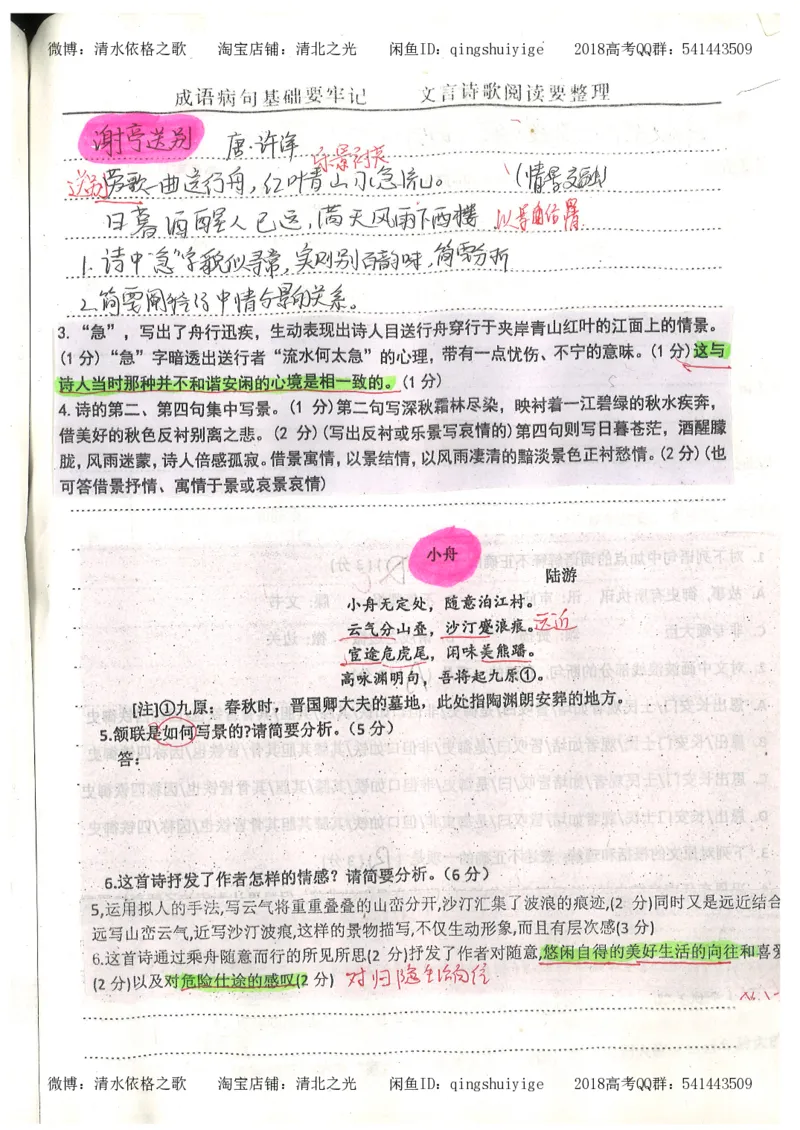 微博：清水依格之歌 淘宝店铺：清北之光 闲鱼ID：qingshuiyige 2018高考QQ群：541443509
成语病句基础要牢记 文言诗歌阅读要整理
谢亭送别 唐·许浑
乐景衬哀
送别 劳歌一曲送行舟，红叶青山水急流。 (情景交融)
日暮酒醒人已远，满天风雨下西楼 以景结情
1.诗中"急"字貌似寻常，实则别有韵味，简要分析
2.简要阐释诗中情与景的关系。
3. “急”，写出了舟行迅疾，生动表现出诗人目送行舟穿行于夹岸青山红叶的江面上的情景。
(1 分) “急”字暗透出送行者“流水何太急”的心理，带有一点忧伤、不宁的意味。(1 分) 这与
诗人当时那种并不和谐安闲的心境是相一致的。(1 分)
4. 诗的第二、第四句集中写景。(1 分) 第二句写深秋霜林尽染，映衬着一江碧绿的秋水疾奔，
借美好的秋色反衬别离之悲。(2 分) (写出反衬或乐景写哀情的) 第四句则写日暮苍茫，酒醒朦
胧，风雨迷蒙，诗人倍感孤寂。借景寓情，以景结情，以风雨凄清的黯淡景色正衬愁情。(2 分) (也
可答借景抒情、寓情于景或哀景哀情)
小舟
陆游
小舟无定处，随意泊江村。
云气分山叠，沙汀蹙浪痕。 远近
宦途危虎尾，闲味美熊蹯。
高咏渊明句，吾将起九原①。
[注]①九原：春秋时，晋国卿大夫的墓地，此处指陶渊明安葬的地方。
5.颔联是如何写景的?请简要分析。（5 分）
答：
6.这首诗抒发了作者怎样的情感？请简要分析。（6 分）
5,运用拟人的手法,写云气将重重叠叠的山峦分开,沙汀汇集了波浪的痕迹,(2 分)同时又是远近结合
远写山峦云气,近写沙汀波痕,这样的景物描写,不仅生动形象,而且有层次感(3 分)
6.这首诗通过乘舟随意而行的所见所思(2 分)抒发了作者对随意,悠闲自得的美好生活的向往和喜爱
(2 分)以及对危险仕途的感叹(2 分) 对归隐生活向往
微博：清水依格之歌 淘宝店铺：清北之光 闲鱼ID：qingshuiyige 2018高考QQ群：541443509